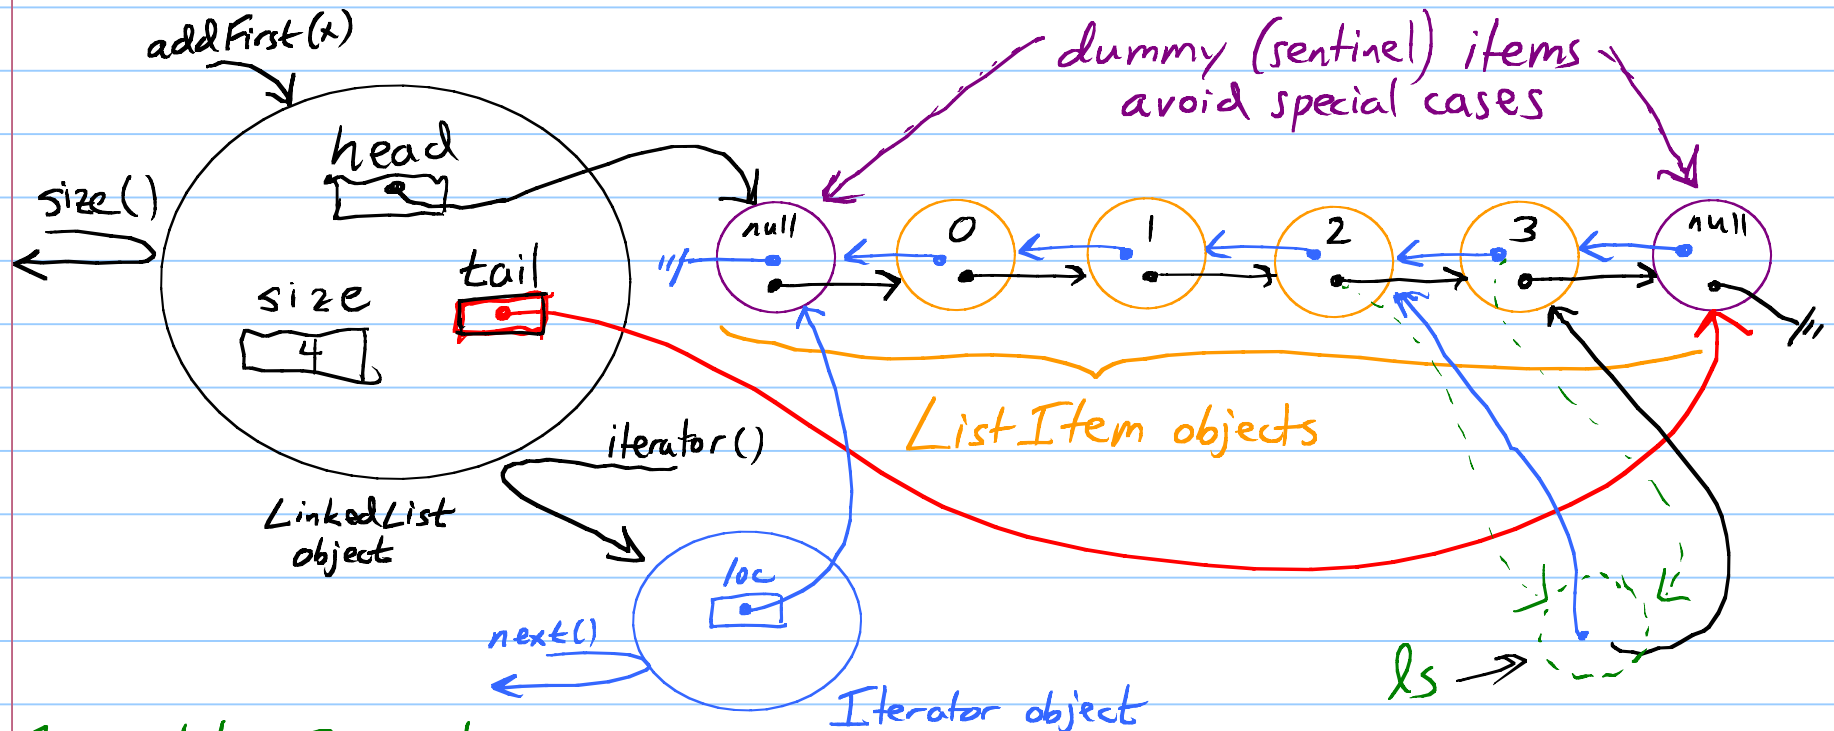 addFirst(x)
dummy (sentinel) items
avoid special cases
head
size()
null
0
1
2
3
null
tail
size
4
ListItem objects
iterator()
LinkedList
object
loc
next()
ls
Iterator object